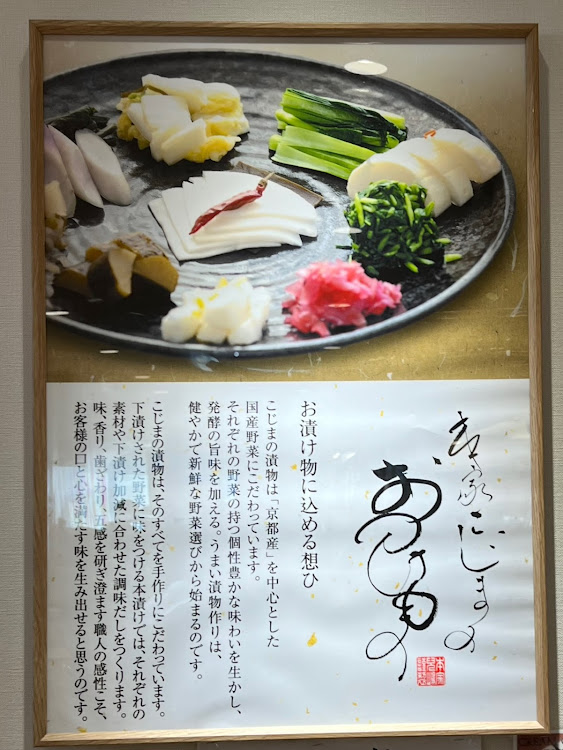 京家こじまの
おつけもの
お漬け物に込める想ひ
こじまの漬物は「京都産」を中心とした
国産野菜にこだわっています。
それぞれの野菜の持つ個性豊かな味わいを生かし、
発酵の旨味を加える。うまい漬物作りは、
健やかで新鮮な野菜選びから始まるのです。
こじまの漬物は、そのすべてを手作りにこだわっています。
下漬けされた野菜に味をつける本漬けでは、それぞれの
素材や下漬け加減に合わせた調味だしをつくります。
味、香り、歯ざわり、五感を研ぎ澄ます職人の感性こそ、
お客様の口と心を満たす味を生み出せると思うのです。